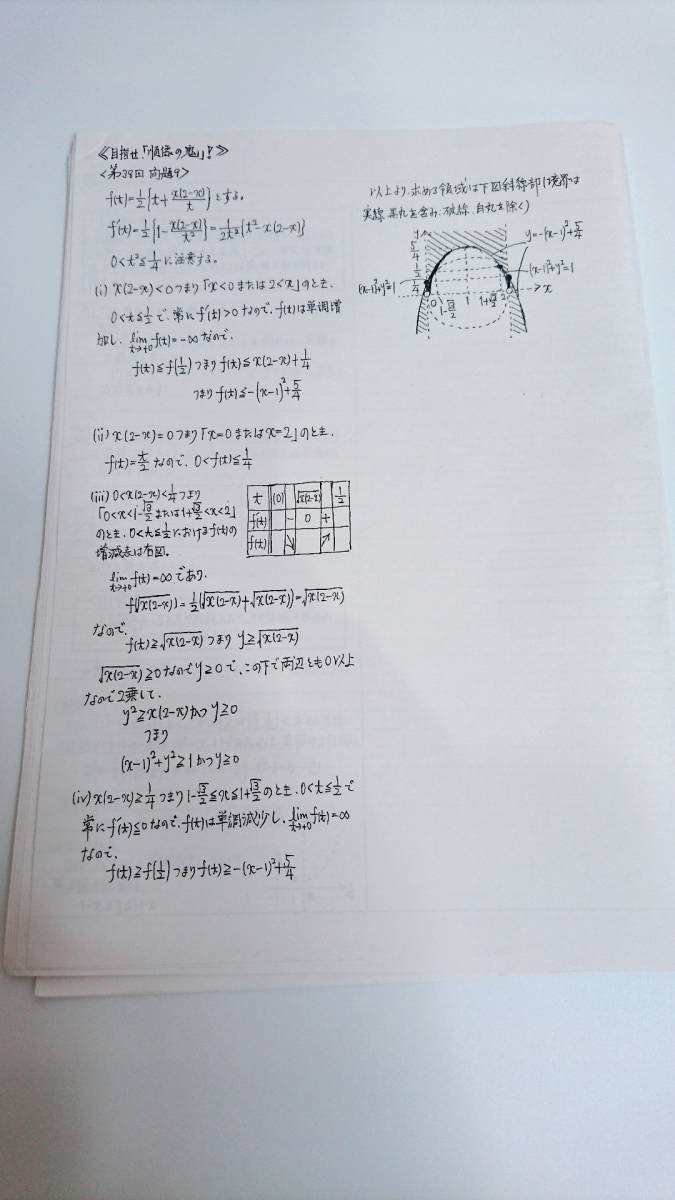 ≪目指せ「順像の鬼」!≫
<第38回 問題9>
f(t)=1/2{t+x(2-x)/t}とする。
f'(t)=1/2{1-x(2-x)/t²}=1/2t²{t²-x(2-x)}
0<t²≦1/4に注意する。
(i) x(2-x)<0つまり「x<0または2<x」のとき、
0<t≦1/2で、常にf'(t)>0なので、f(t)は単調増
加し、lim t→+0 f(t)=-∞なので、
f(t)≦f(1/2)つまりf(t)≦x(2-x)+1/4
つまりf(t)≦-(x-1)²+5/4
(ii) x(2-x)=0つまり「x=0またはx=2」のとき、
f(t)=t/2なので、0<f(t)≦1/4
(iii) 0<x(2-x)<1/4つまり
「0<x<1-√3/2または1+√3/2<x<2」
のとき、0<t≦1/2におけるf(t)の
増減表は右図。
t (0) √x(2-x) 1/2
f'(t) - 0 +
f(t) ↘ ↗
lim t→+0 f(t)=∞であり、
f(√x(2-x))=1/2(√x(2-x)+√x(2-x))=√x(2-x)
なので、
f(t)≧√x(2-x)つまりy≧√x(2-x)
√x(2-x)≧0なのでy≧0で、この下で両辺とも0以上
なので2乗して、
y²≧x(2-x)かつy≧0
つまり
(x-1)²+y²≧1かつy≧0
(iv) x(2-x)≧1/4つまり1-√3/2≦x≦1+√3/2のとき、0<t≦1/2で
常にf'(t)≦0なので、f(t)は単調減少し、lim t→+0 f(t)=∞
なので、
f(t)≧f(1/2)つまりf(t)≧-(x-1)²+5/4
以上より、求める領域は下図斜線部(境界は
実線、黒丸を含み、破線、白丸を除く)
y
5/4
y=-(x-1)²+5/4
1/2
1/4
(x-1)²+y²=1
(x-1)²+y²=1
0
1-√3/2
1
1+√3/2
2
x